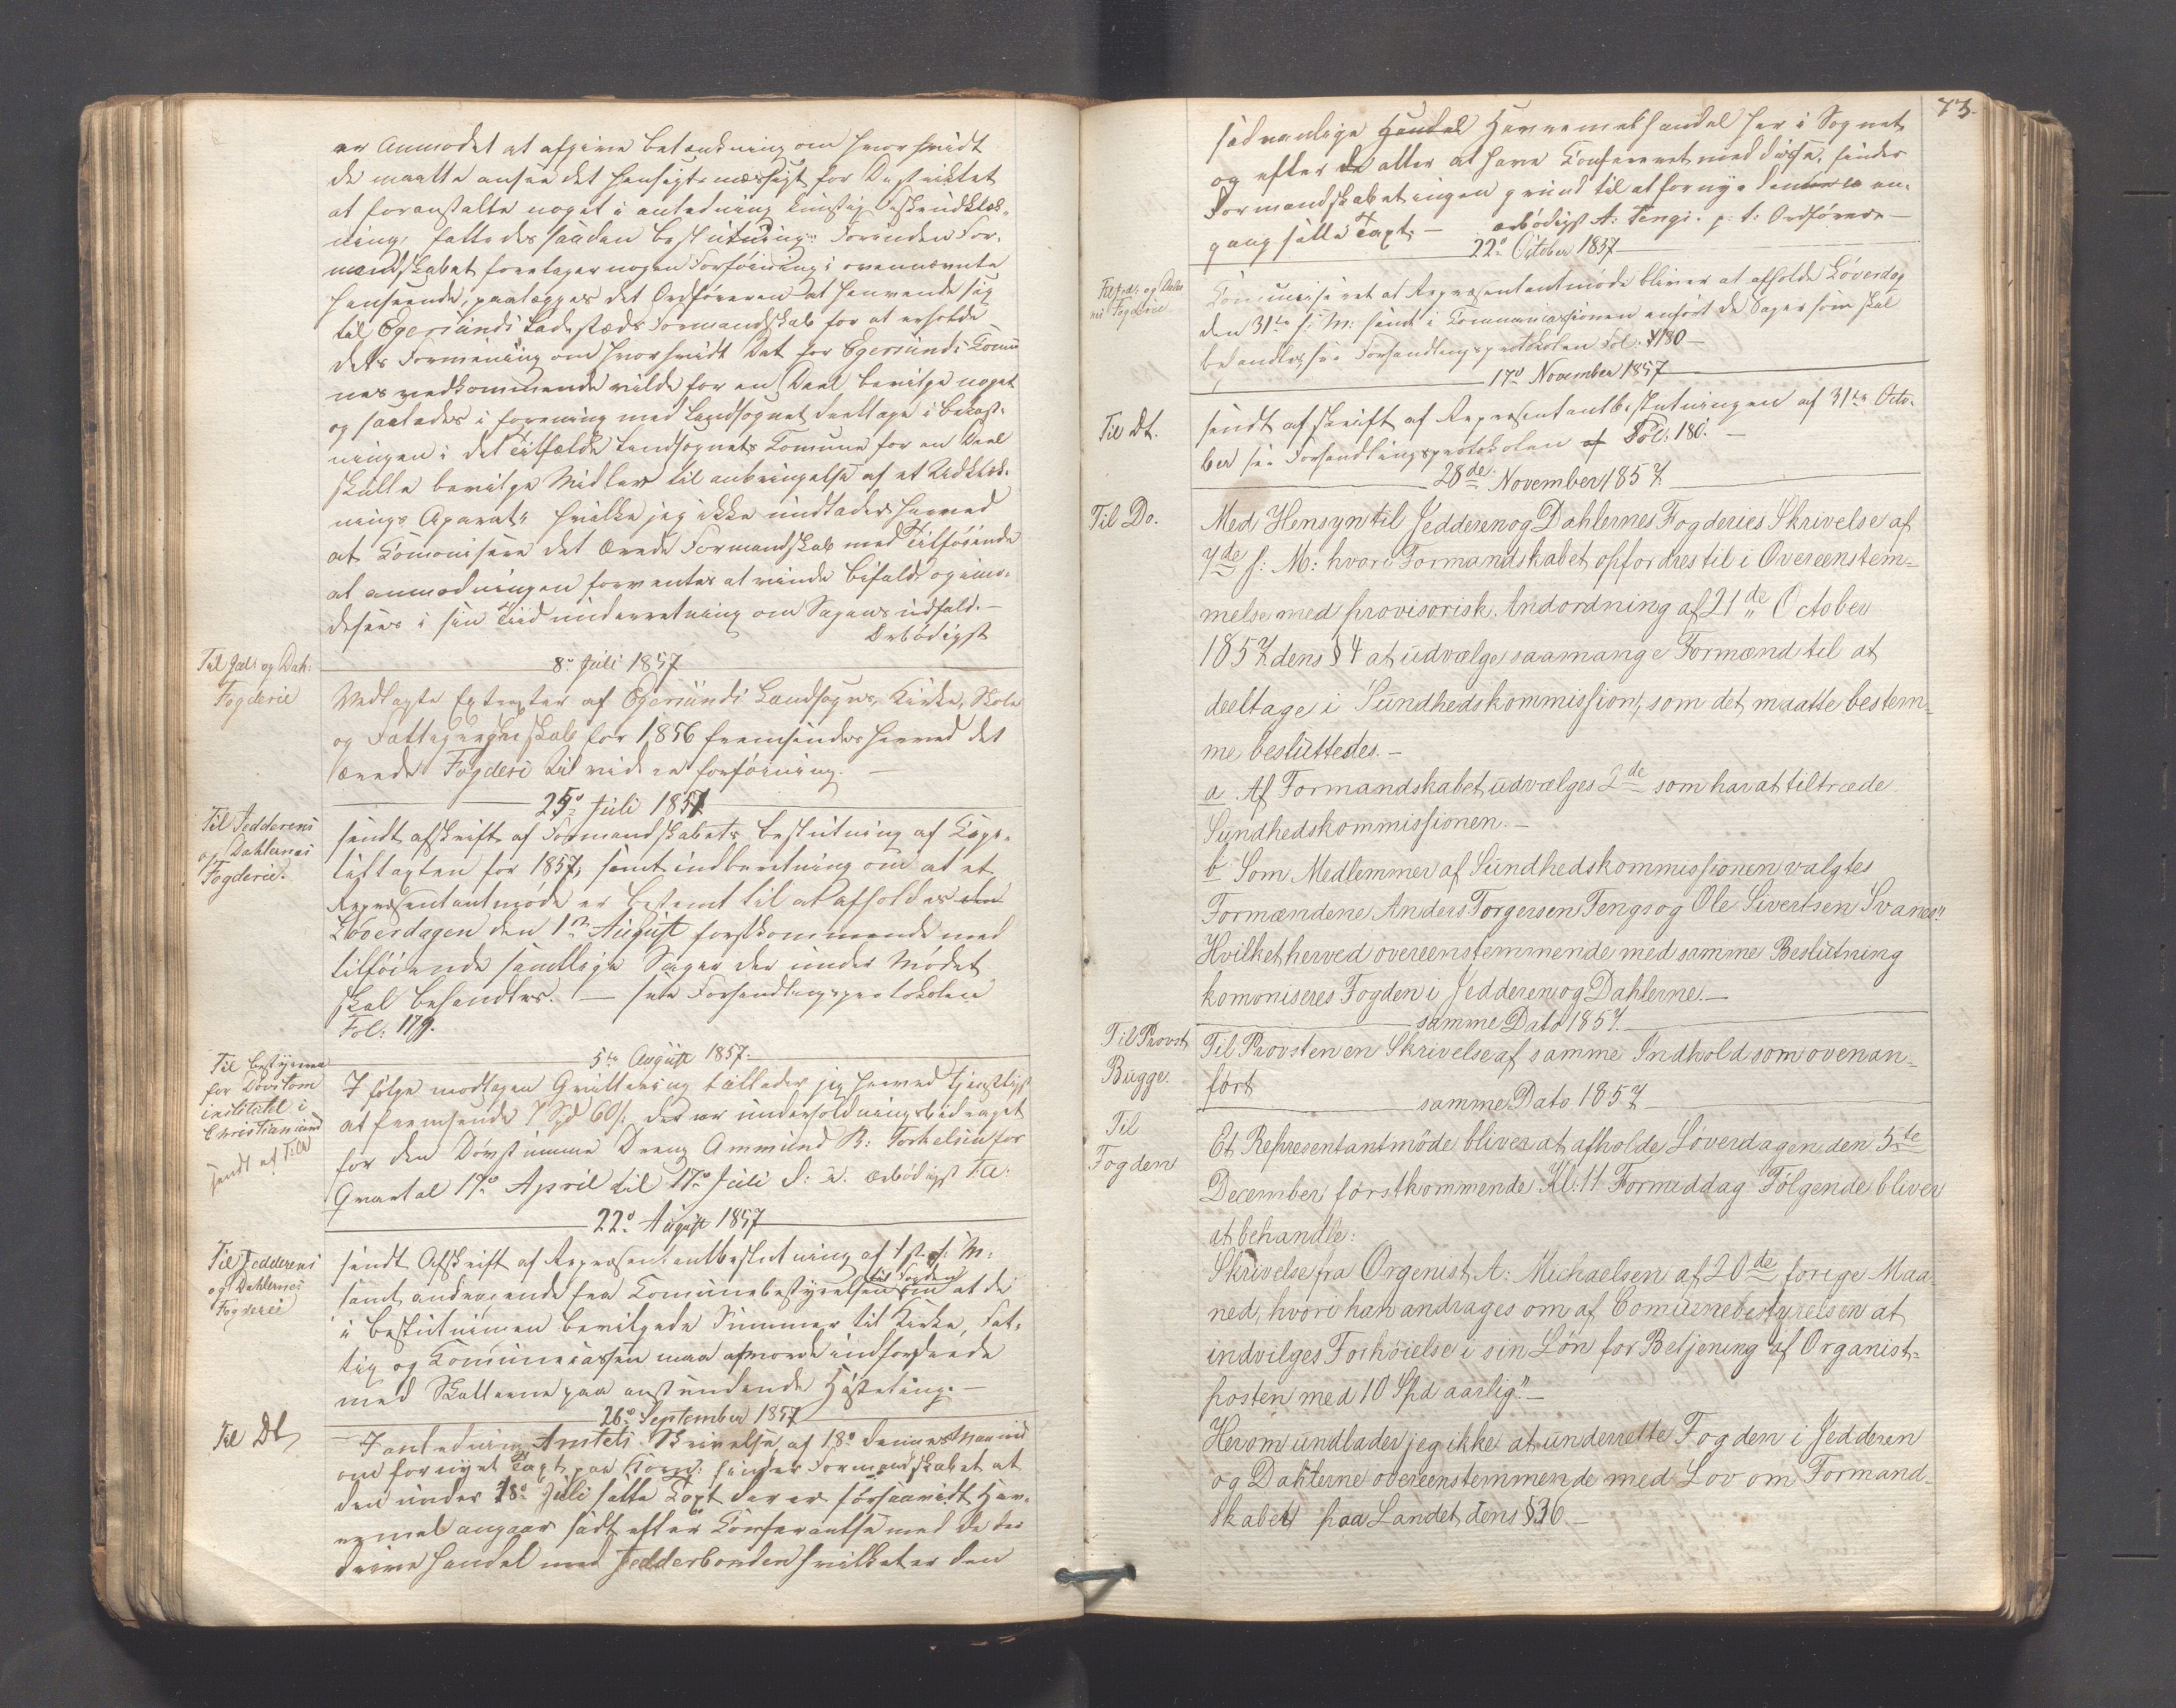 er Anmodet at afgive betænkning om hvorhvidt
de maatte ansee det hensigtsmæssigt for Distriktet
at foranstalte noget i anledning kunstig Fiskeudklæk-
ning, fattedes saadan beslutning: Forinden For-
mandskabet foretager nogen Forføining i ovennævnte
henseende, paalægges det Ordføreren at henvende sig
til Egersunds Ladesteds Formandskab for at erholde
dets Formening om hvorhvidt Det for Egersunds Komu
nes vedkommende vilde for en Deel bevilge noget
og saaledes i forening med Landsognet deeltage i bekost-
ningen i det Tilfælde Landsognets Komune for en Deel
skulle bevilge Midler til anbringelse af et Udklæk-
nings Aparat" hvilke jeg ikke undlader herved
at Komonisere det ærede Formandskab med Tilføiende
at anmodningen forventes at vinde bifald og imø-
desees i sin Tiid underretning om Sagens udfald. -
Ærbødigst
8de Juli 1857
Til Jæd: og Dah:
Fogderie
Vedlagte Extrakter af Egersunds Landsogns, Kirke, Skole
og Fattigregnskab for 1856 fremsendes herved det
ærede Fogderi til videre forføining. -
25de Juli 1857
Til Jedderens
og Dahlernes
Fogderie.
sendt afskrift af Formandskabets beslutning af Kapi-
taltaxten for 1857, samt indberetning om at et
Representantmøde er bestemt til at afholdes den
Løverdagen den 1ste August førstkommende med
tilføiende samtlige Sager der under Mødet
skal behandles. - see Forhandlingsprotokolen
Fol: 179.
5te August 1857.
Til bestyreren
for Døvstom
institutet i
Christiansand
sendt af Til D
I følge modtagen Qvittering tillader jeg herved tjenstligst
at fremsende 7 Spd 60 s. der er underholdningsbidraget
for den Døvstumme Dreng Ammund R: Torkelsen for
Qvartal 17de April til 17de Juli d: A. ærbødigst Ta:
22de August 1857
Til Jedderens
og Dahlernes
Fogderei
sendt Afskrift af Representantbeslutning af 1ste d: M:
til Fogden
samt andragende fra Komunebestyrelsen om at de
i beslutningen bevilgede Summer til Kirke, Fat-
tig og Komunecassen maa afvorde indfordrede
med Skatterne paa anstundende Høsteting. -
26de September 1857
Til Dt
I anledning Amtets Skrivelse af 18de dennes Maaned
om fornyet Taxt paa Korn: finder Formandskabet at
den under 18de Juli satte Taxt der er forsaavidt Hav-
remel angaar sadt efter Konferantse med de der
drive handel med Jedderbonden hvilket er den
73.
sædvanlige Handel Havremelshandel her i Sognet,
og efter de atter at have Konfereret med disse, finder
Formandskabet ingen grund til at fornye denne en-
gang satte Taxt. - ærbødigst A: Tengs. p: t: Ordfører -
22de October 1857
Til Jed: og Dahler
nes Fogderie
Komuniseret at Representantmøde bliver at afholde Løverdag
den 31te d: M: samt i Communicassionen anført de Sager som skal
behandles, see Forhandlingsprotokolen Fol. 180 -
17de November 1857
Til Dt.
sendt afskrift af Representantbeslutningen af 31te Octo-
ber see Forhandlingsprotokolen af Fol: 180. -
28de November 1857.
Til Do.
Med Hensyn til Jedderen og Dahlernes Fogderies Skrivelse af
7de f: M: hvori Formandskabet opfordres til i Overeenstem-
melse med provisorisk Andordning af 21de October
1857 dens § 4 at udvælge saamange Formænd til at
deeltage i Sundhedskommission, som det maatte bestem-
me besluttedes. -
a Af Formandskabet udvælges 2de som har at tiltræde
Sundhedskommissionen. -
b Som Medlemmer af Sundhedskommissionen valgtes
Formændene Anders Torgersen Tengs og Ole Sivertsen Svanes"
Hvilket herved overeenstemmende med samme Beslutning
komoniseres Fogden i Jedderen og Dahlerne. -
samme Dato 1857.
Til Provst
Bugge.
Til Provsten en Skrivelse af samme Indhold som ovenan-
ført
samme Dato 1857
Til
Fogden
Et Representantmøde bliver at afholde Løverdagen den 5te
December førstkommende Kl: 11 Formiddag Følgende bliver
at behandle:
Skrivelse fra Orgenist A: Michaelsen af 20de forige Maa-
ned, hvori han andrages om af Comunebestyrelsen at
indvilges Forhøielse i sin Løn for Betjening af Organist-
posten med 10 Spd aarlig." -
Herom undlader jeg ikke at underrette Fogden i Jedderen
og Dahlerne overeenstemmende med Lov om Formand-
skabet paa Landet dens § 36 -